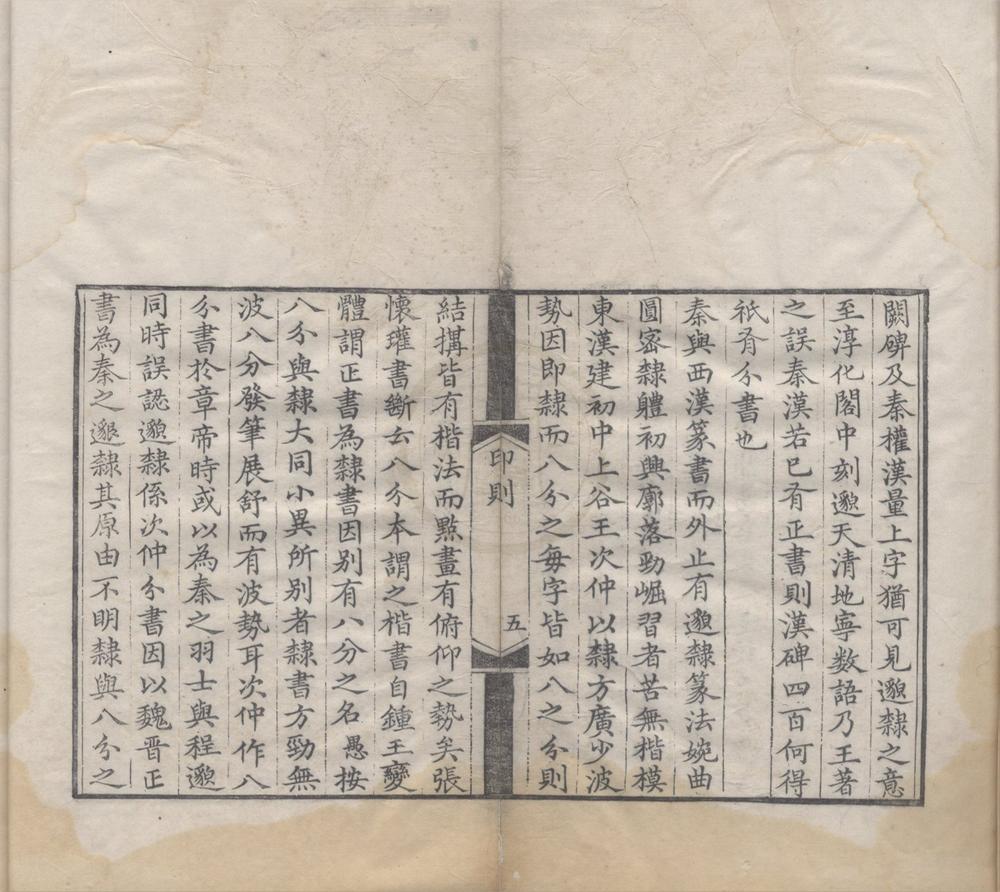 闕碑及秦權漢量上字猶可見邈隸之意
至淳化閣中刻邈天清地寧数語乃王著
之誤秦漢若已有正書則漢碑四百何得
祇有分書也
秦與西漢篆書而外止有邈隸篆法婉曲
圓宻隸軆初興廓落勁崛習者苦無楷模
東漢建初中上谷王次仲以隸方廣少波
勢因即隸而八分之每字皆如八之分則
印則
五
結搆皆有楷法而㸃畫有俯仰之勢矣張
懷瓘書斷云八分本謂之楷書自鍾王變
體謂正書為隸書因别有八分之名愚按
八分與隸大同小異所别者隸書方勁無
波八分發筆展舒而有波勢耳次仲作八
分書於章帝時或以為秦之羽士與程邈
同時誤認邈隸係次仲分書因以魏晋正
書為秦之邈隸其原由不明隸與八分之